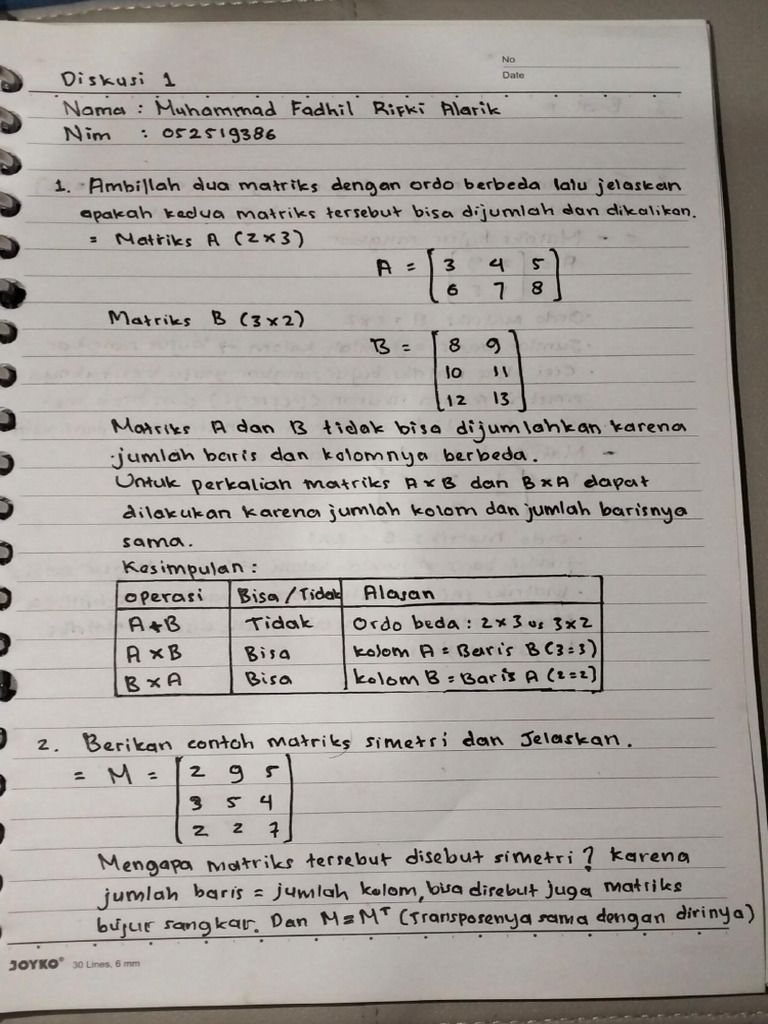 No
Date
Diskusi 1
Nama : Muhammad Fadhil Rifki Alarik
Nim : 052519386
1. Ambillah dua matriks dengan ordo berbeda lalu jelaskan
apakah kedua matriks tersebut bisa dijumlah dan dikalikan.
= Matriks A (2x3)
A = [3 4 5
6 7 8]
Matriks B (3x2)
B = [8 9
10 11
12 13]
Matriks A dan B tidak bisa dijumlahkan karena
jumlah baris dan kolomnya berbeda.
Untuk perkalian matriks A x B dan B x A dapat
dilakukan karena jumlah kolom dan jumlah barisnya
sama.
Kesimpulan :
operasi Bisa / Tidak Alasan
A + B Tidak Ordo beda : 2x3 vs 3x2
A x B Bisa kolom A = Baris B (3=3)
B x A Bisa kolom B = Baris A (2=2)
2. Berikan contoh matriks simetri dan Jelaskan.
= M = [2 9 5
3 5 4
2 2 7]
Mengapa matriks tersebut disebut simetri? karena
jumlah baris = jumlah kolom, bisa disebut juga matriks
bujur sangkar. Dan M = Mᵀ (Transposenya sama dengan dirinya)
JOYKO® 30 Lines, 6 mm